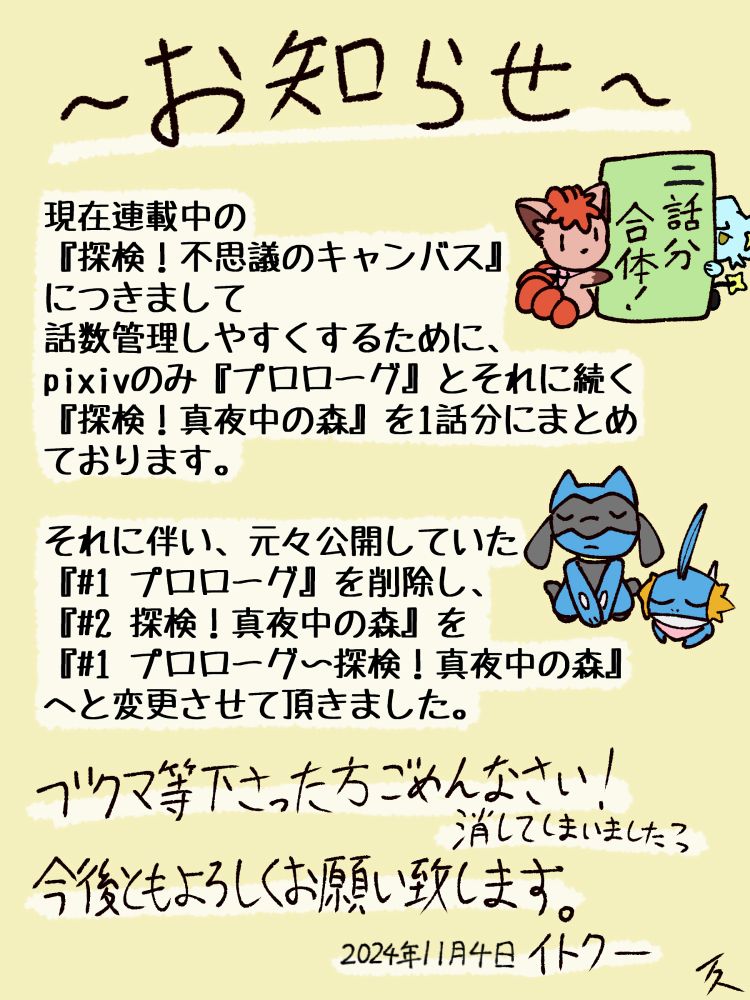 ～お知らせ～
二話分
合体！
現在連載中の
『探検！不思議のキャンバス』
につきまして
話数管理しやすくするために、
pixivのみ『プロローグ』とそれに続く
『探検！真夜中の森』を1話分にまとめ
ております。
それに伴い、元々公開していた
『#1 プロローグ』を削除し、
『#2 探検！真夜中の森』を
『#1 プロローグ〜探検！真夜中の森』
へと変更させて頂きました。
ブクマ等下さった方ごめんなさい！
消してしまいましたっ
今後ともよろしくお願い致します。
2024年11月4日 イトクー